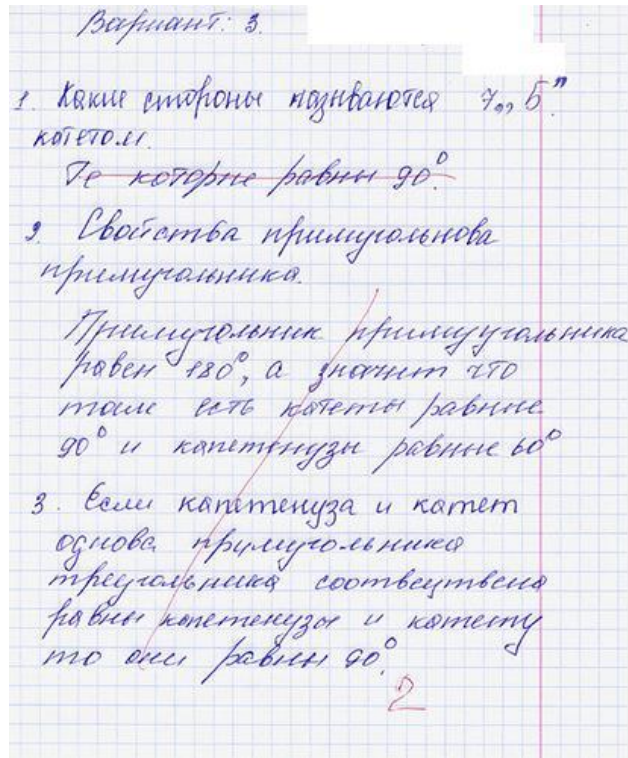 Вариант: 3.
1. Какие стороны называются 7 „Б"
катетом.
Те которые равны 90°.
2. Свойства примуголньова
примуголника.
Примугольник примууголника
равен 180°, а значит что
там есть катеты равные
90° и капетенузы равные 60°
3. Если капетенуза и катет
однова примуголника
треугольника соотвеутвена
равны капетенузы и катету
то они равны 90°.
2